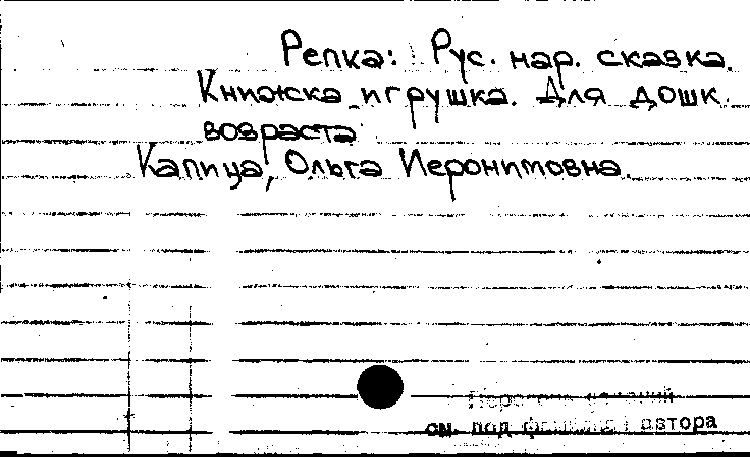 Репка: Рус. нар. сказка.
Книжска игрушка. Для дошк.
возраста
Капица, Ольга Иеронимовна.
см. под автора